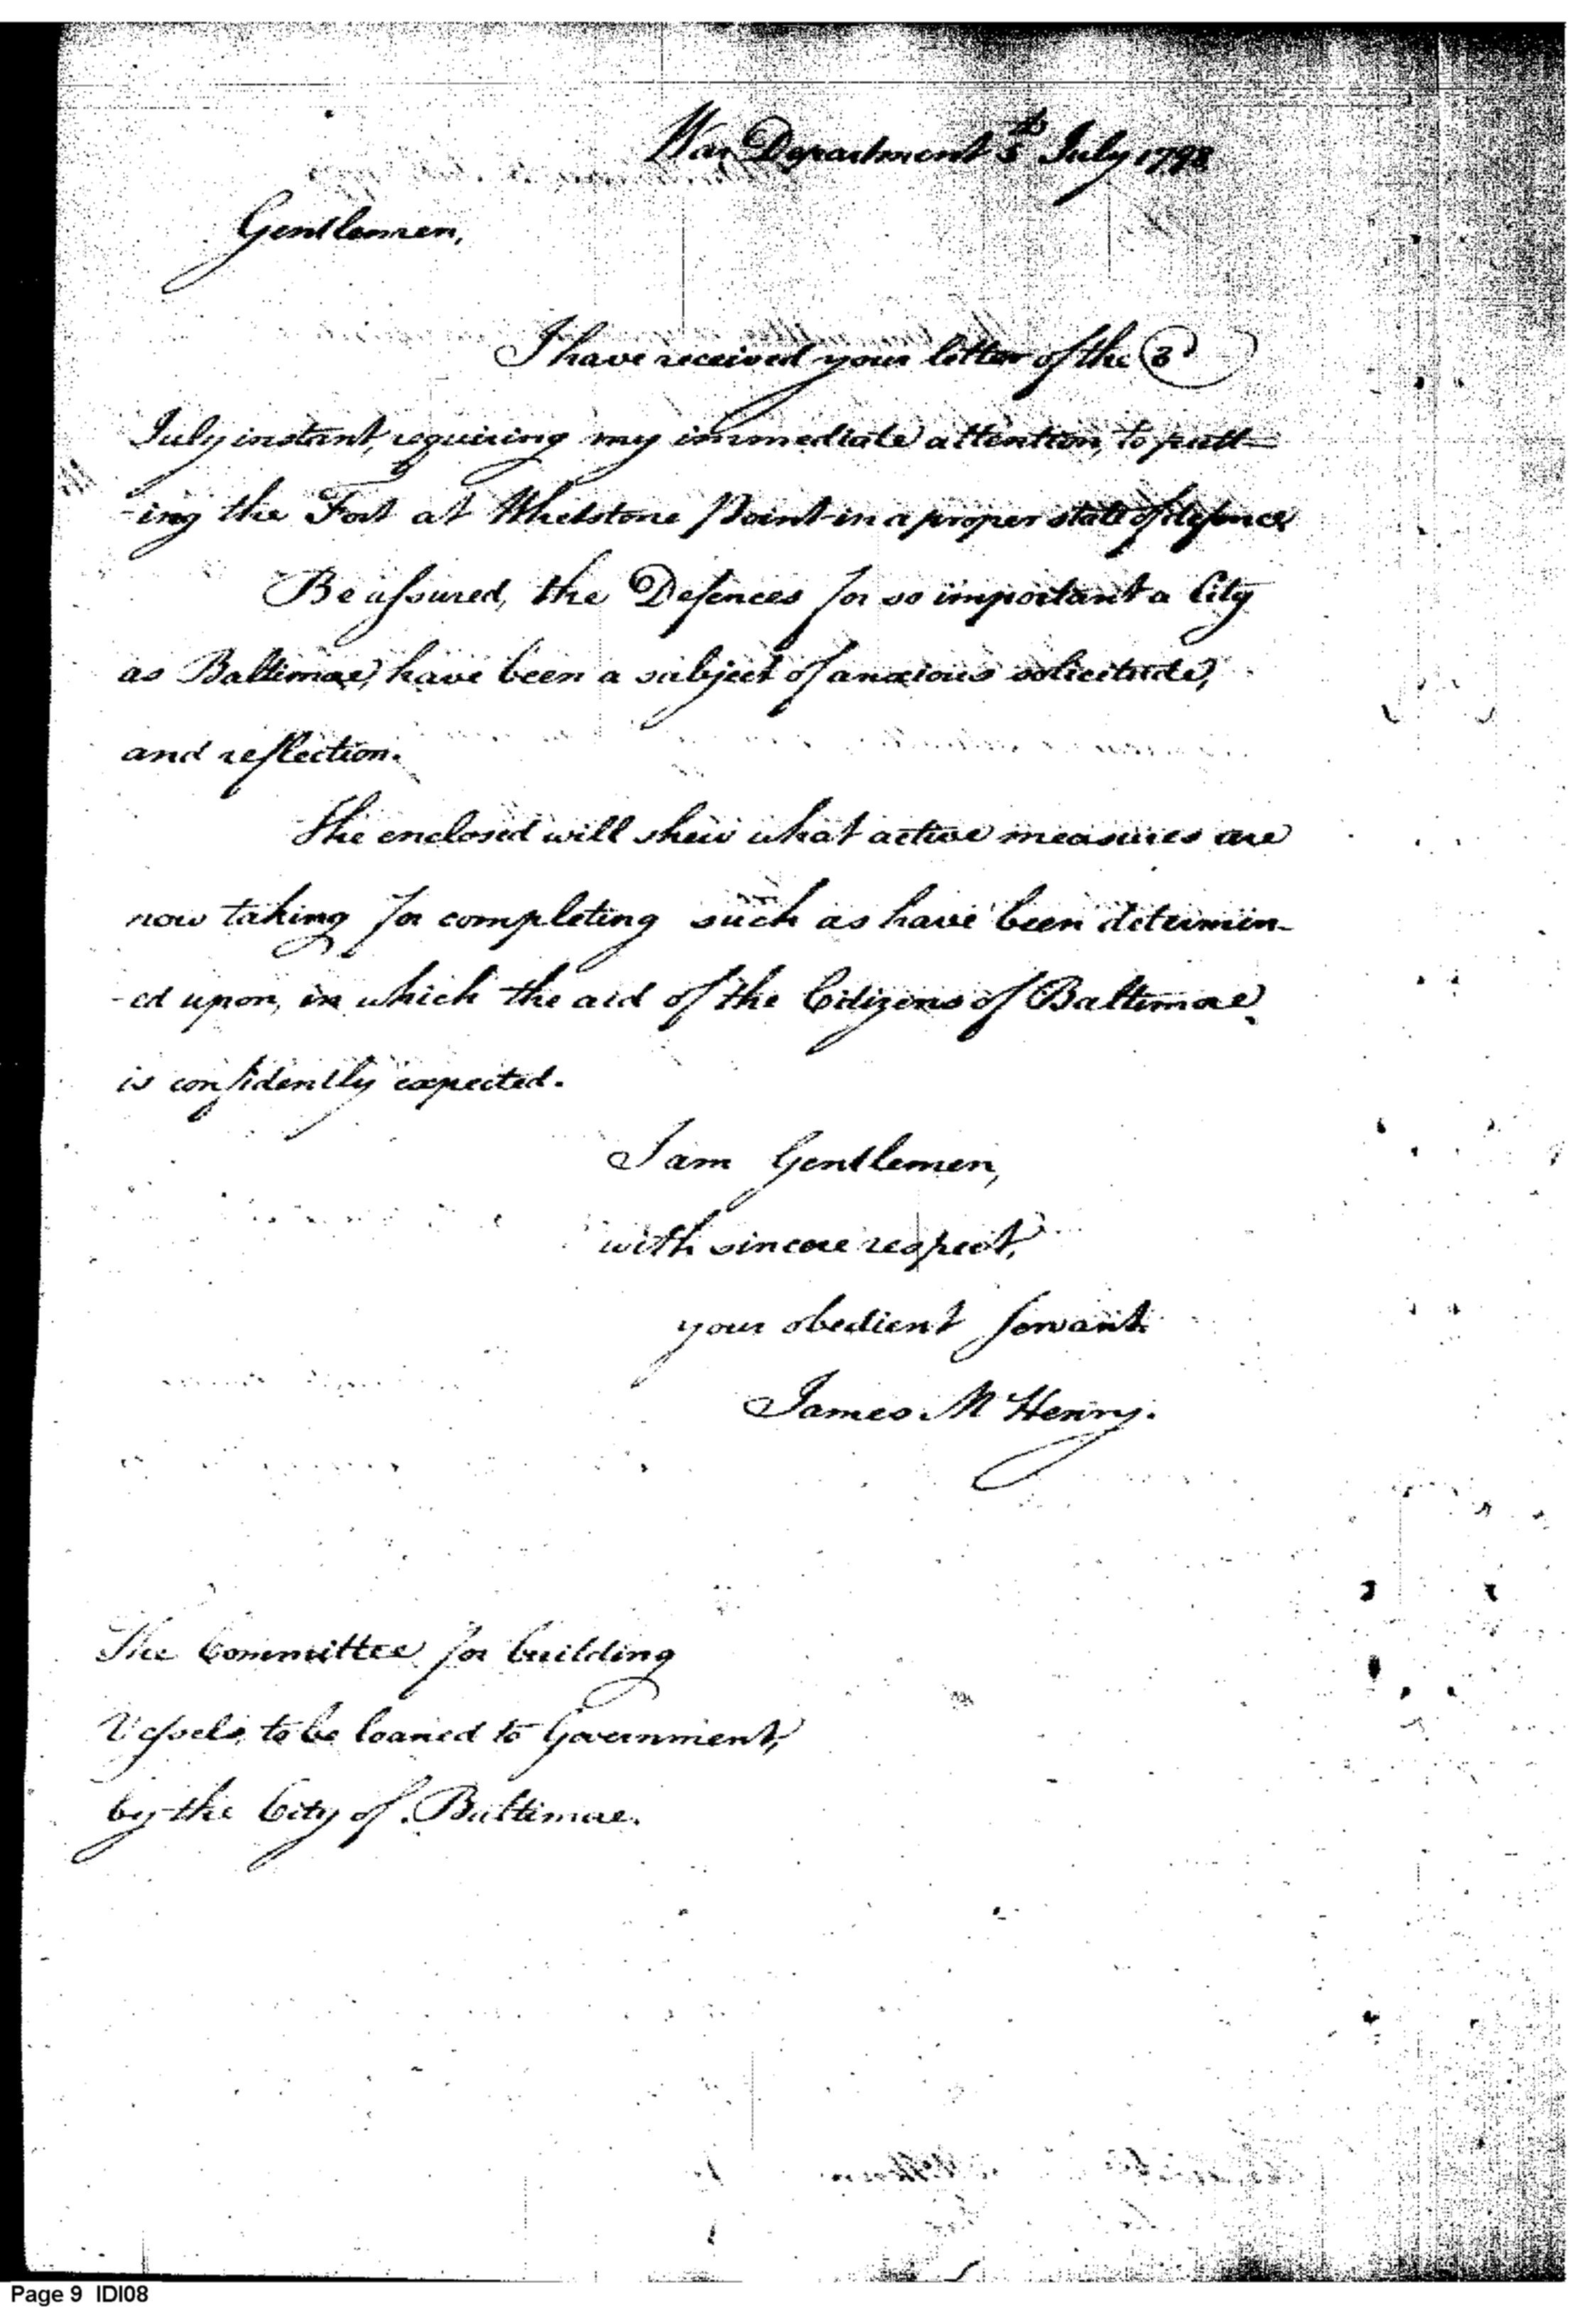 War Department 5th July 1798
Gentlemen,
I have received your letter of the 3d
July instant, requiring my immediate attention, to putt=
-ing the Fort at Whetstone Point in a proper state of defence
Be assured, the Defences for so important a City
as Baltimore, have been a subject of anxious solicitude,
and reflection.
The enclosed will shew what active measures are
now taking for completing such as have been determin-
-ed upon, in which the aid of the Citizens of Baltimore
is confidently expected.
I am Gentlemen,
with sincere respect,
your obedient servant.
James McHenry.
The Committee for building
Vessels, to be loaned to Government,
by the City of Baltimore.
Page 9 IDI08